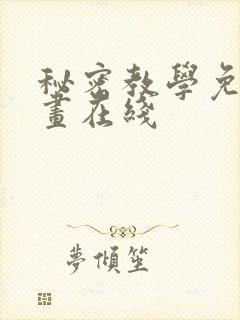 秘密教學免
畫在綫
夢傾笙